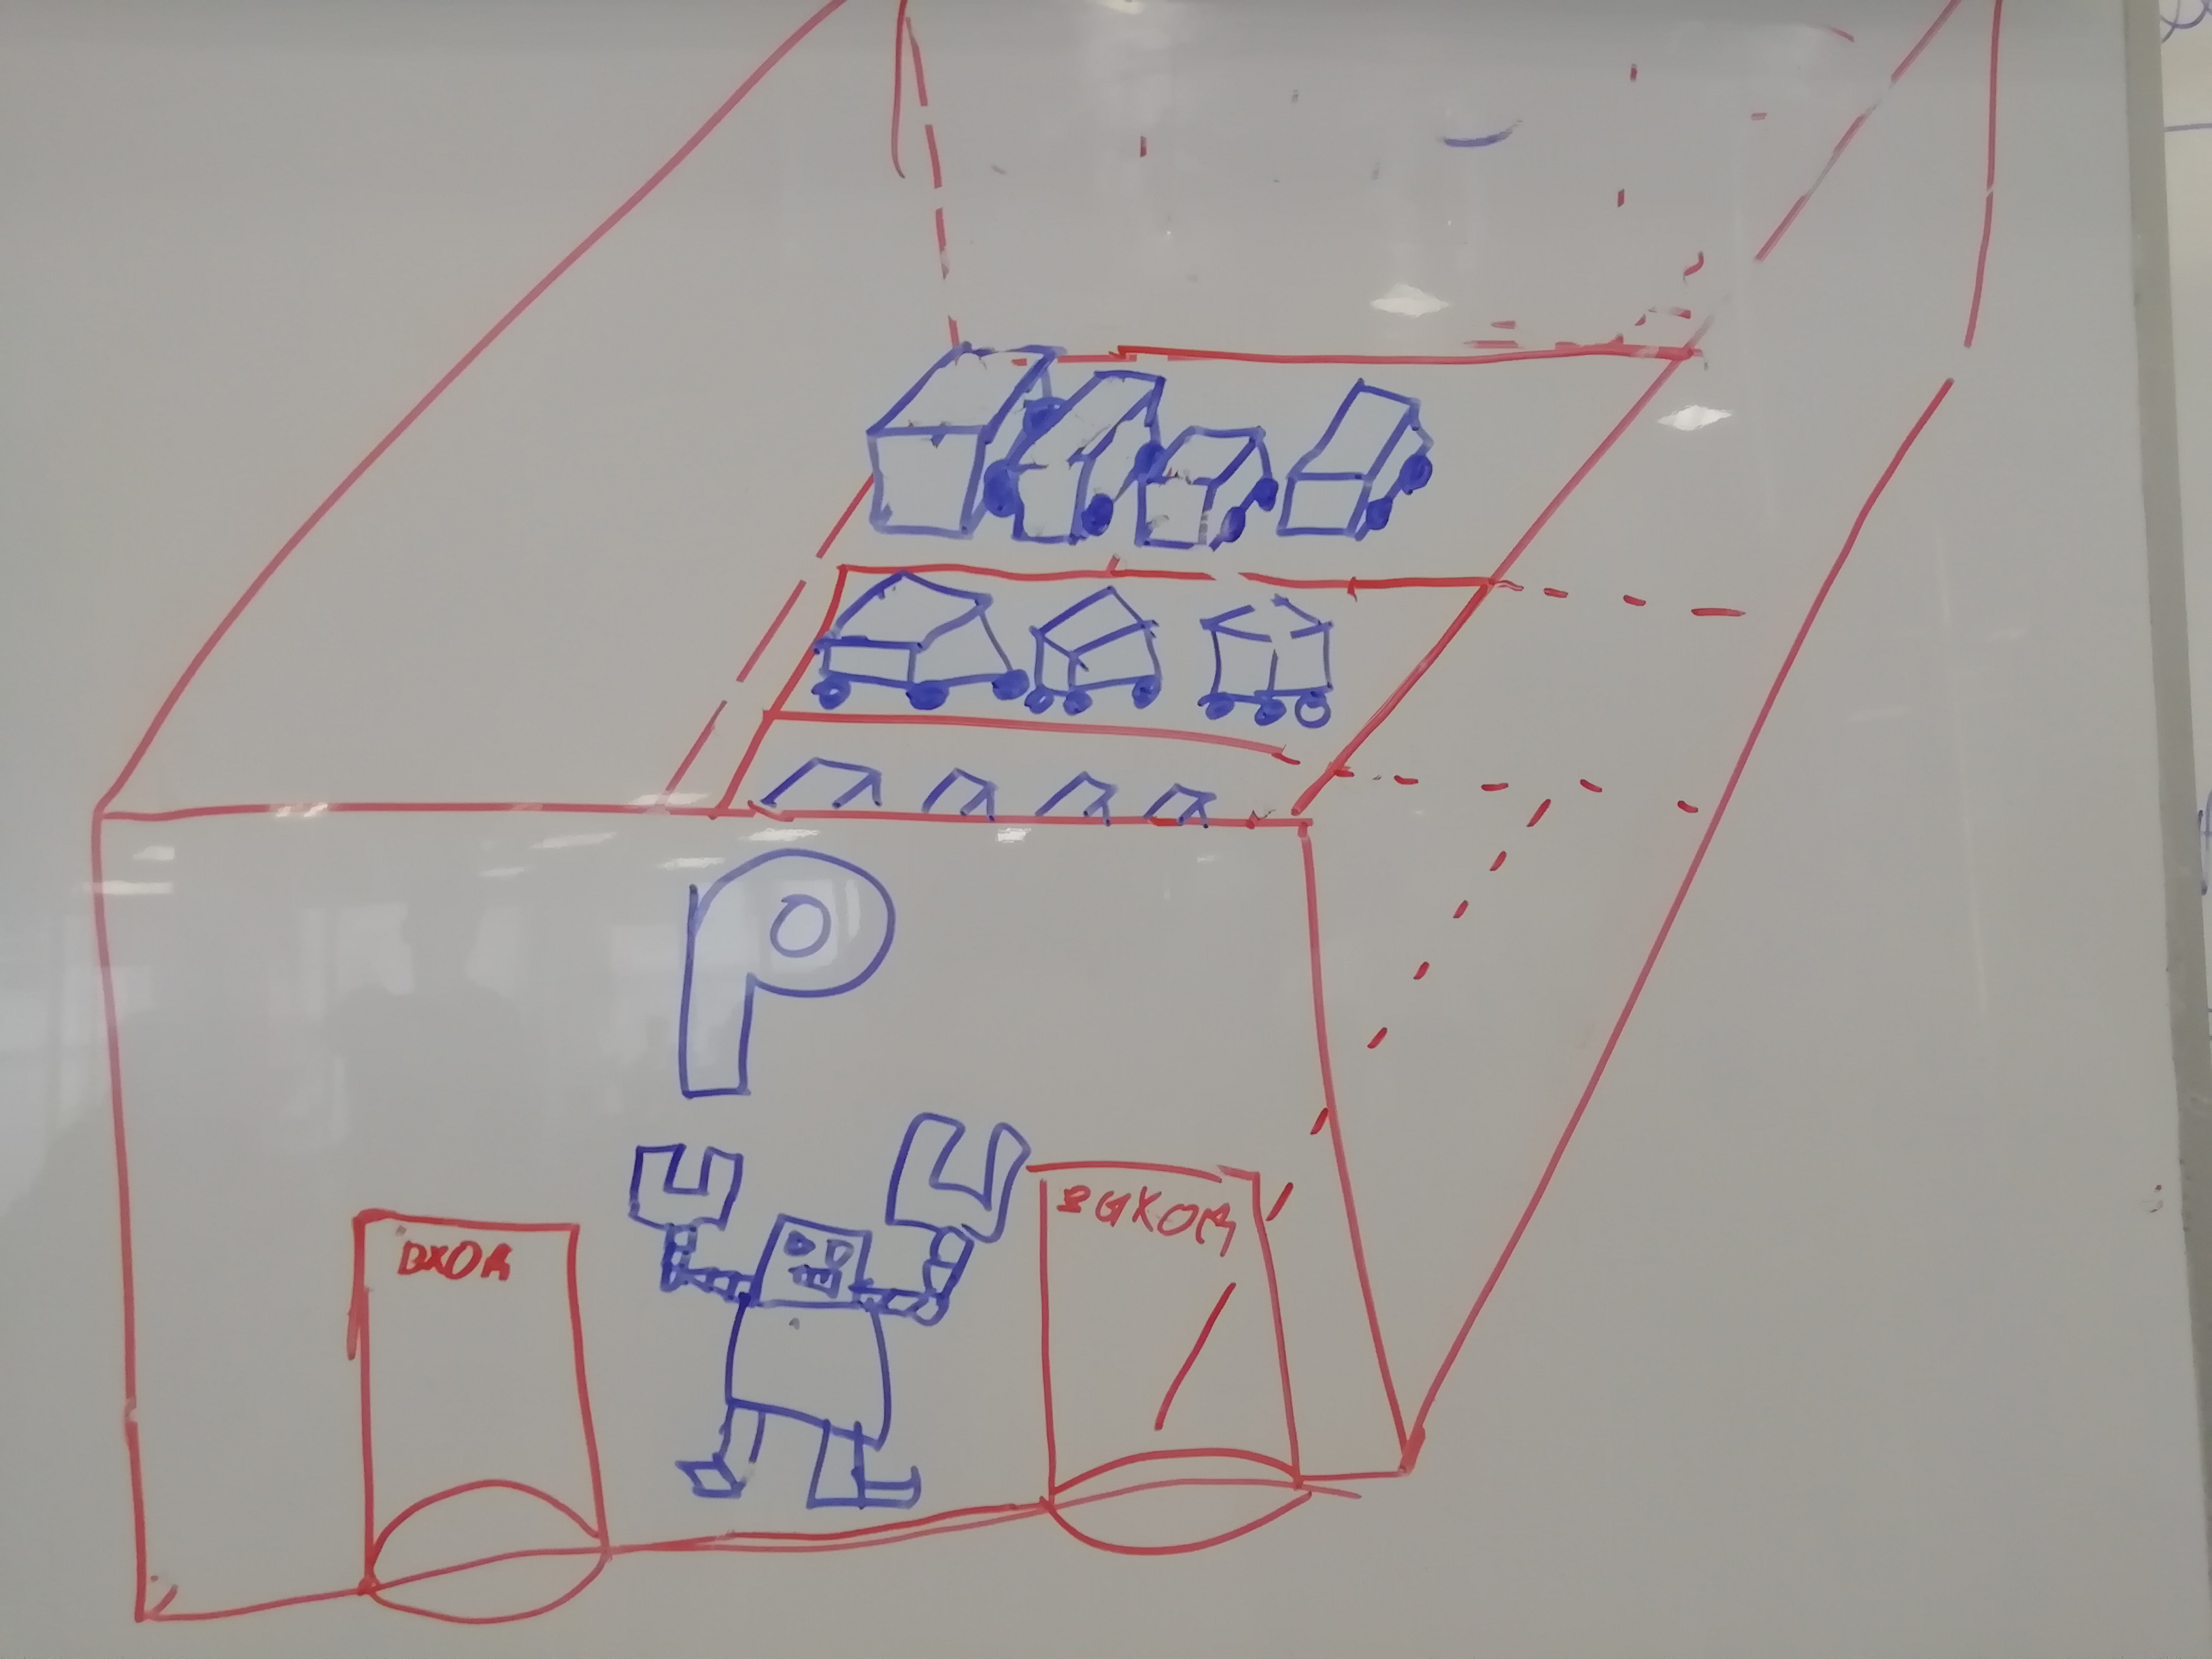 P
ВХОД
ВЫХОД